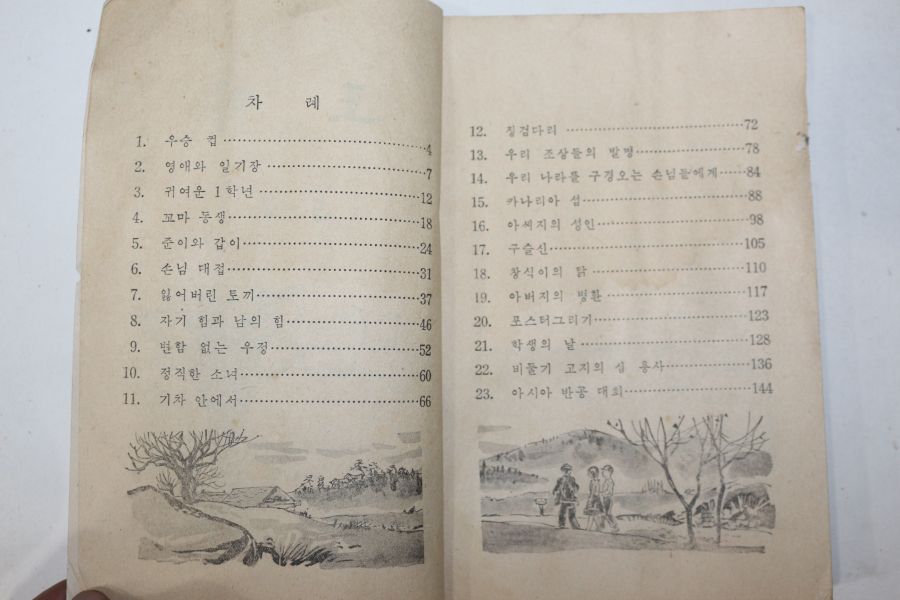 차 례
1. 우승 컵 4
2. 영애와 일기장 7
3. 귀여운 1학년 12
4. 꼬마 동생 18
5. 준이와 갑이 24
6. 손님 대접 31
7. 잃어버린 토끼 37
8. 자기 힘과 남의 힘 46
9. 변함 없는 우정 52
10. 정직한 소녀 60
11. 기차 안에서 66
12. 징검다리 72
13. 우리 조상들의 발명 78
14. 우리 나라를 구경오는 손님들에게 84
15. 카나리아 섬 88
16. 아씨지의 성인 98
17. 구슬신 105
18. 창식이의 닭 110
19. 아버지의 병환 117
20. 포스터그리기 123
21. 학생의 날 128
22. 비둘기 고지의 심 용사 136
23. 아시아 반공 대회 144